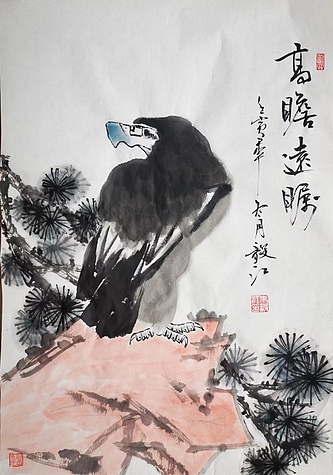 高瞻遠矚
壬寅年
月毅江